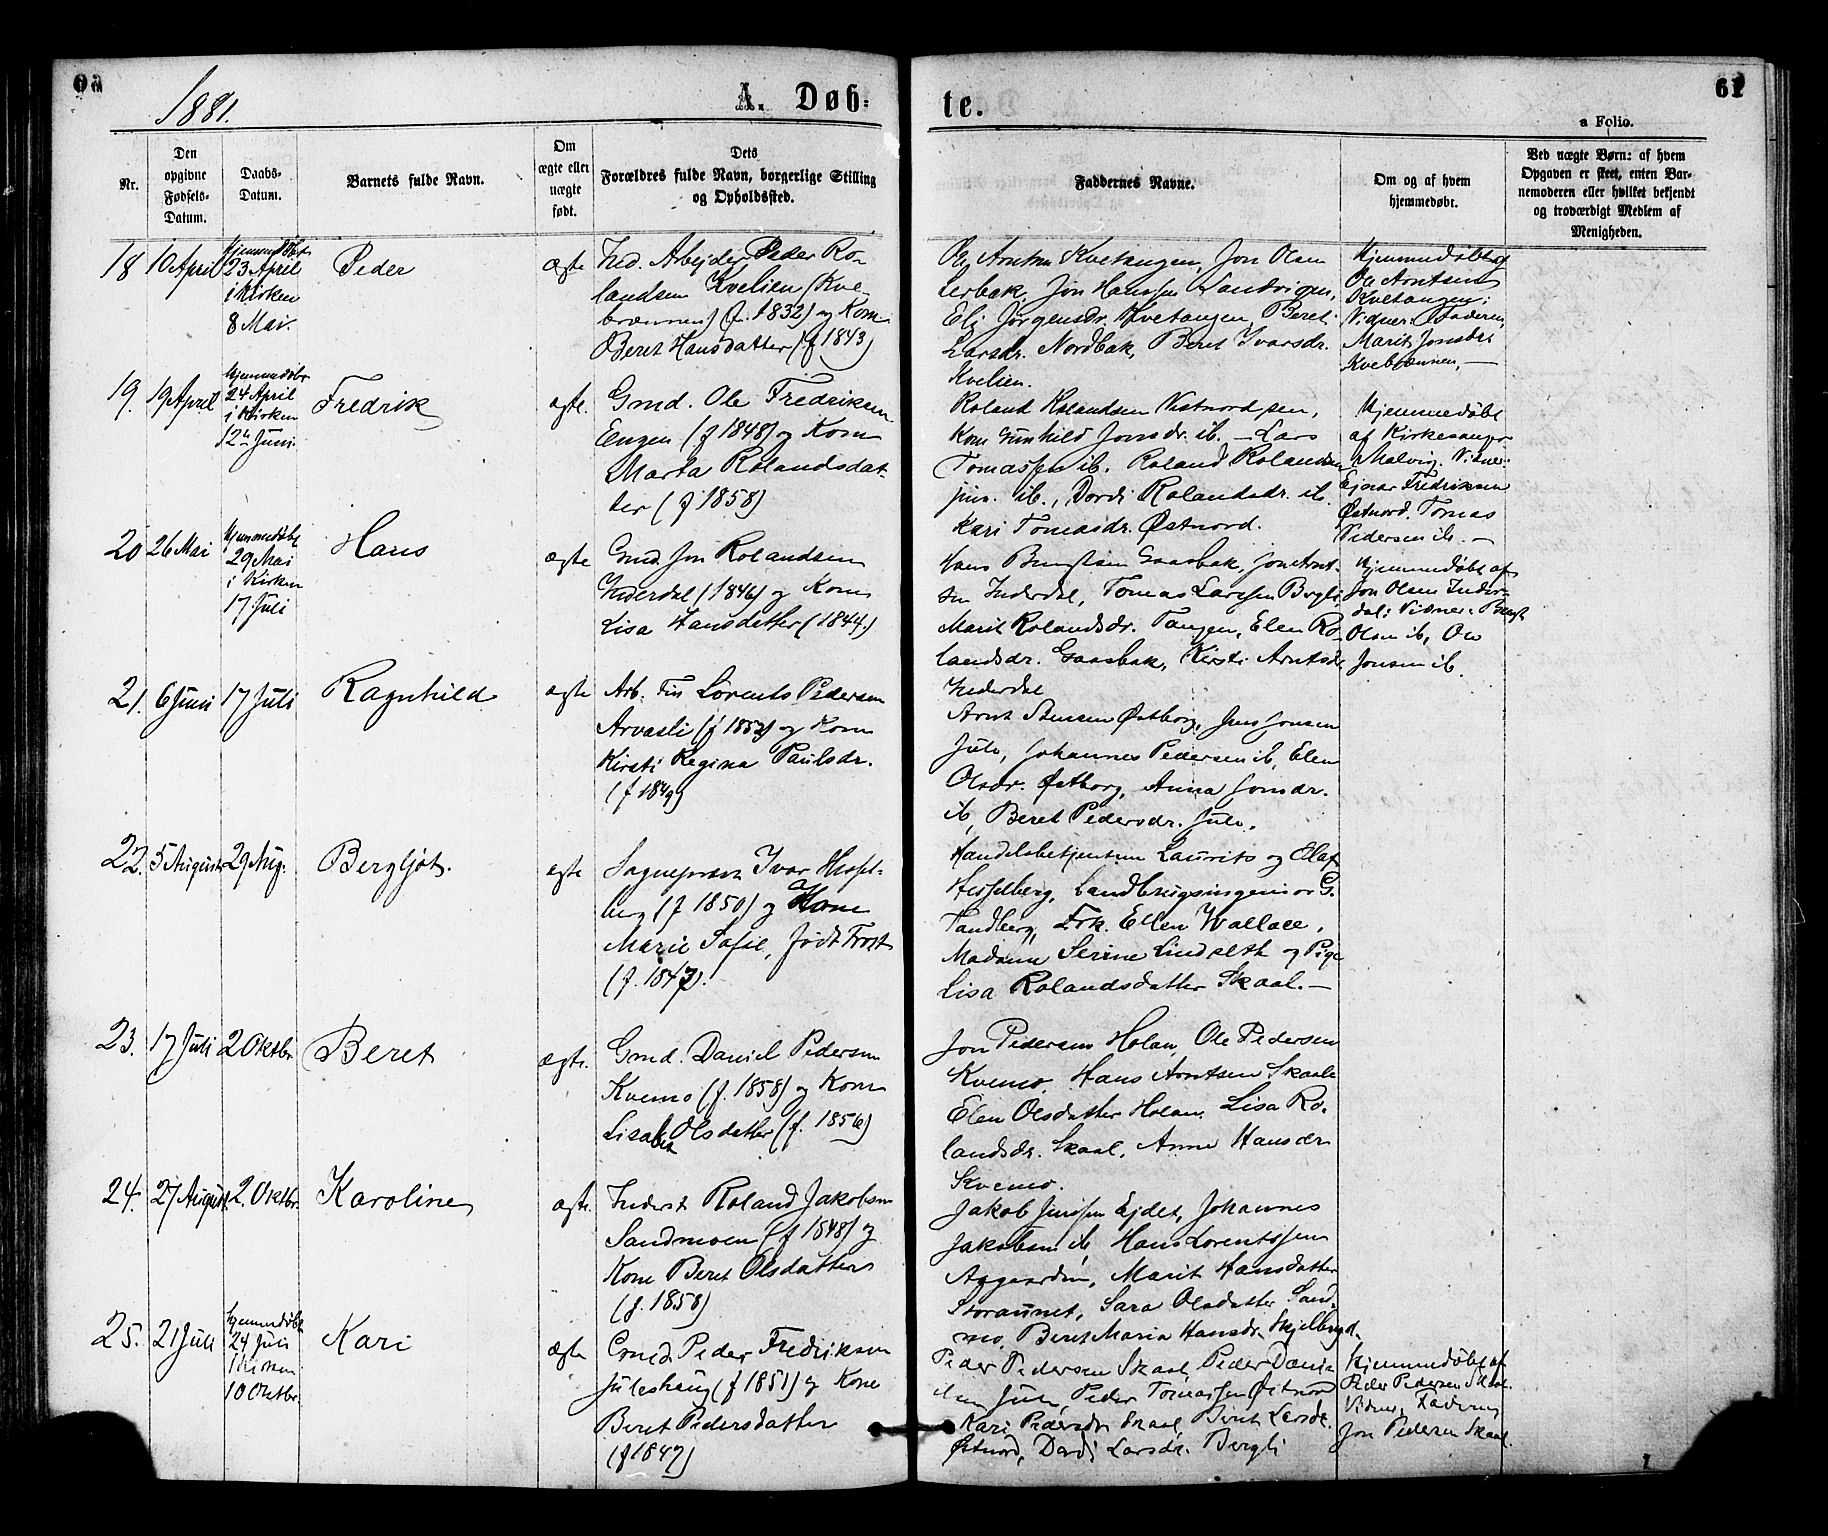 1881.
A. Døb-
te.
61
a Folio.
Nr.
Den
opgivne
Fødsels-
Datum.
Daabs-
Datum.
Barnets fulde Navn.
Om
ægte eller
uægte
født.
Dets
Forældres fulde Navn, borgerlige Stilling
og Opholdssted.
Faddernes Navne.
Om og af hvem
hjemmedøbt.
Ved uægte Børn: af hvem
Opgaven er skeet, enten Bar-
nemoderen eller hvilket bekjendt
og troværdigt Medlem af
Menigheden.
18
10 April
Hjemmedøbt
23 April
i Kirken
8 Mai.
Peder
ægte
Ind. Arbejder Peder Ro-
landsen Kvelien (Kve-
brænnen) (f. 1832) og Kone
Beret Hansdatter (f 1843)
Ole Arntsen Kvetangen, Jon Olsen
Lerbak, Jon Hanssen Sandvigen,
Eli Jørgensdr. Kvetangen, Beret
Larsdr. Nordbak, Beret Ivarsdr.
Kvelien.
Hjemmedøbt af
Ole Arntsen
Kvetangen;
Vidner: Faderen,
Marit Jonsdtr
Kvebrænnen, —
19.
19 April
Hjemmedøbt
24 April
i Kirken
12te Juni.
Fredrik
ægte.
Gmd. Ole Fredriksen
Engen (f 1848) og Kone
Marta Rolandsdat-
ter (f 1858)
Roland Rolandsen Vestnordssen,
Kone Gunhild Jonsdr. ib. — Lars
Tomassen ib. Roland Rolandsen
jun. ib., Dordi Rolandsdr. ib.
Kari Tomasdr. Østnord.
Hjemmedøbt
af Kirkesanger
Malvig. Vidner:
Ejnar Fredriksen
Østnord. Tomas
Pedersen ib. —
20
26 Mai
Hjemmedøbt
29 Mai
i Kirken
17 Juli
Hans
ægte
Gmd. Jon Rolandsen
Inderdal (1846) og Kone
Lisa Hansdatter (1844.)
Hans Bengtsen Gaasbak, Jon Arnt-
sen Inderdal, Tomas Larssen Bergli,
Marit Rolandsdr. Tangen, Elen Ro-
landsdr. Gaasbak, Kirsti Arntsdr
Inderdal
Hjemmedøbt af
Jon Olsen Inder-
dal; Vidner: Bengt
Olsen ib, Ole
Jonsen ib.
21.
6 Juni
17 Juli
Ragnhild
ægte
Arb. Fin Lorents Pedersen
Arvasli (f 1852) og Kone
Kirsti Regina Paulsdr.
(f 1849)
Arnt Steensen Østborg, Jens Jonsen
Jule, Johannes Pedersen ib, Elen
Olsdr. Østborg, Anna Jonsdr.
ib, Beret Pedersdr. Jule.
22.
5 August
29 Aug.
Bergljot.
ægte
Sogneprest Ivar Hessel-
berg (f 1850) og Kone
Marie Sofie, født Frost
(f. 1847).
Handelsbetjentene Laurits og Olaf
Hesselberg, Landbrugsingeniør G.
Tandberg, Frk. Ellen Wallace,
Madame Serine Lindseth og Pige
Lisa Rolandsdatter Skaal. —
23.
17 Juli
2 Oktbr
Beret
ægte.
Gmd. Daniel Pedersen
Kvemo (f. 1858) og Kone
Lisabet Olsdatter (f. 1856)
Jon Pedersen Holan, Ole Pedersen
Kvemo, Hans Arntsen Skaale
Elen Olsdatter Holan, Lisa Ro-
landsdr. Skaal, Anne Hansdr
Kvemo.
24.
27 August
2. Oktbr.
Karoline
ægte.
Inderst Roland Jakobsen
Sandmoen (f 1848) og
Kone Beret Olsdatter
(f. 1858)
Jakob Jenssen Ejdet, Johannes
Jakobsen ib, Hans Lorentssen
Aagaarden, Marit Hansdatter
Storaunet, Sara Olsdatter Sand-
mo, Beret Maria Hansdr. Skjelbred,
25.
21 Juli
Hjemmedøbt
24 Juli
i Kirken
10 Oktbr.
Kari
ægte
Gmd. Peder Fredriksen
Juleshaug (f 1851) og Kone
Beret Pedersdatter
(f 1847)
Peder Pedersen Skaal, Peder Danie-
lsen Jule, Peder Tomassen Østnord
Kari Pedersdr Skaal, Berit Larsdr.
Østnord, Dordi Larsdr. Bergli
Hjemmedøbt af
Peder Pedersen Skaal.
Vidner, Faderen,
Jon Pedersen Skaal.